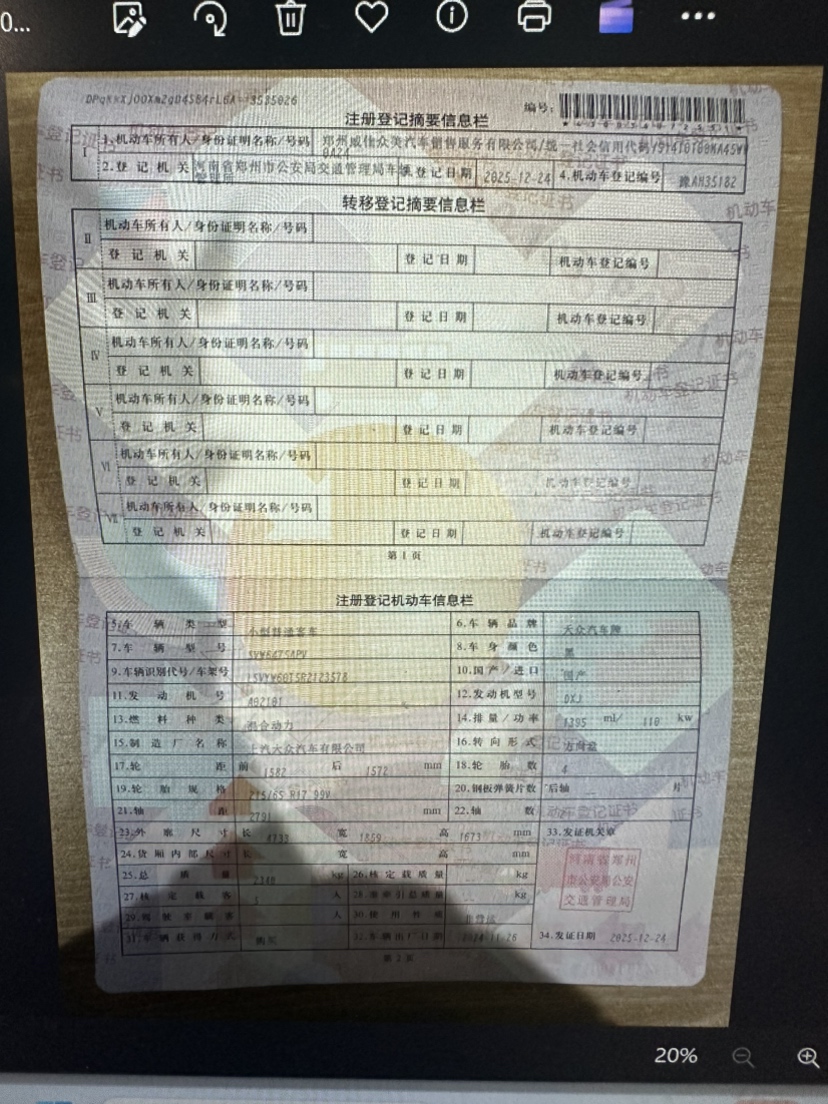 0...
编号:
注册登记摘要信息栏
I 1.机动车所有人/身份证明名称/号码 郑州威佳众美汽车销售服务有限公司/统一社会信用代码/
2.登记机关 河南省郑州市公安局交通管理局车 3.登记日期 2025-12-24 4.机动车登记编号
转移登记摘要信息栏
II 机动车所有人/身份证明名称/号码
登记机关 登记日期 机动车登记编号
III 机动车所有人/身份证明名称/号码
登记机关 登记日期 机动车登记编号
IV 机动车所有人/身份证明名称/号码
登记机关 登记日期 机动车登记编号
V 机动车所有人/身份证明名称/号码
登记机关 登记日期 机动车登记编号
VI 机动车所有人/身份证明名称/号码
登记机关 登记日期 机动车登记编号
VII 机动车所有人/身份证明名称/号码
登记机关 登记日期 机动车登记编号
第1页
注册登记机动车信息栏
5.车辆类型 小型普通客车 6.车辆品牌 大众汽车牌
7.车辆型号 8.车身颜色 黑
9.车辆识别代号/车架号 10.国产/进口 国产
11.发动机号 12.发动机型号
13.燃料种类 混合动力 14.排量/功率 1395 ml/ 110 kw
15.制造厂名称 上汽大众汽车有限公司 16.转向形式 方向盘
17.轮距 前 1582 后 1572 mm 18.轮胎数 4
19.轮胎规格 215/65 R17 99V 20.钢板弹簧片数 后轴 片
21.轴距 2791 mm 22.轴数
23.外廓尺寸 长 宽 1859 高 1673 mm 33.发证机关章
24.货厢内部尺寸 长 宽 高 mm
25.总质量 kg 26.核定载质量 kg
27.核定载客 5 人 28.准牵引总质量 kg
29.驾驶室载客 人 30.使用性质 非营运
31.车辆获得方式 购买 32.车辆出厂日期 34.发证日期 2025-12-24
河南省郑州
市公安局公安
交通管理局
第2页
20%